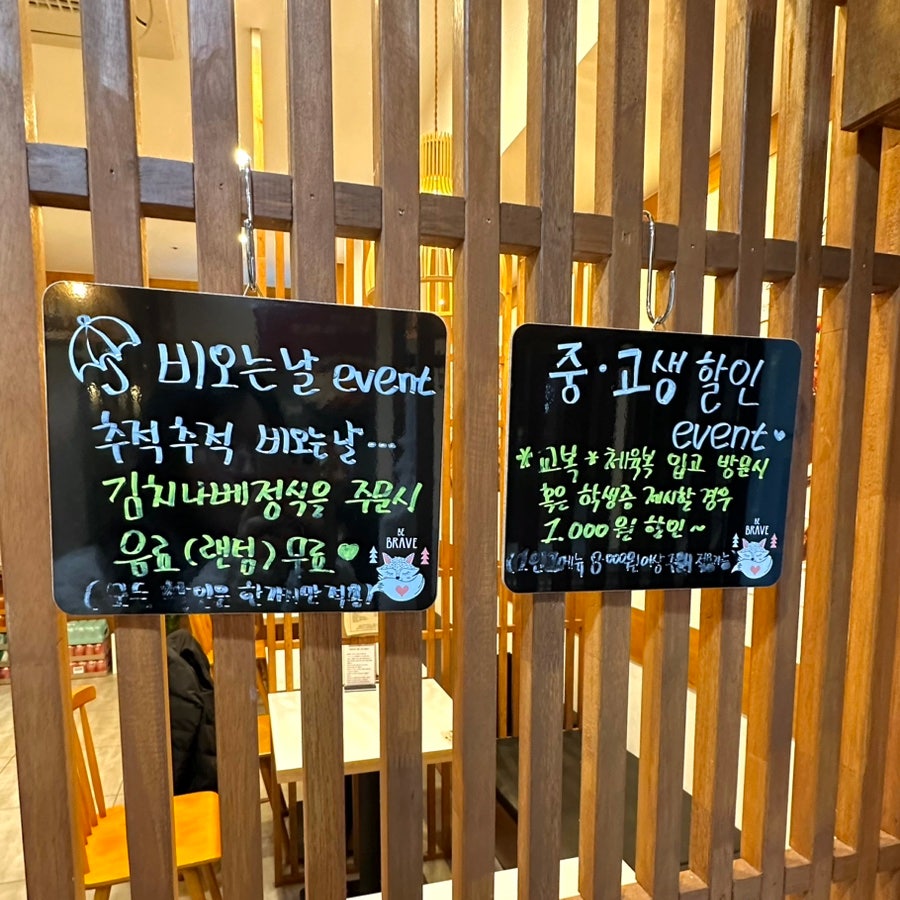 비오는날 event
추적추적 비오는날...
김치나베정식을 주문시
음료(랜덤) 무료
(모든 할인은 한가지만 적용)
BE
BRAVE
중·고생 할인
event
* 교복 * 체육복 입고 방문시
혹은 학생증 제시할 경우
1.000원 할인~
8.000원이상
BE
BRAVE